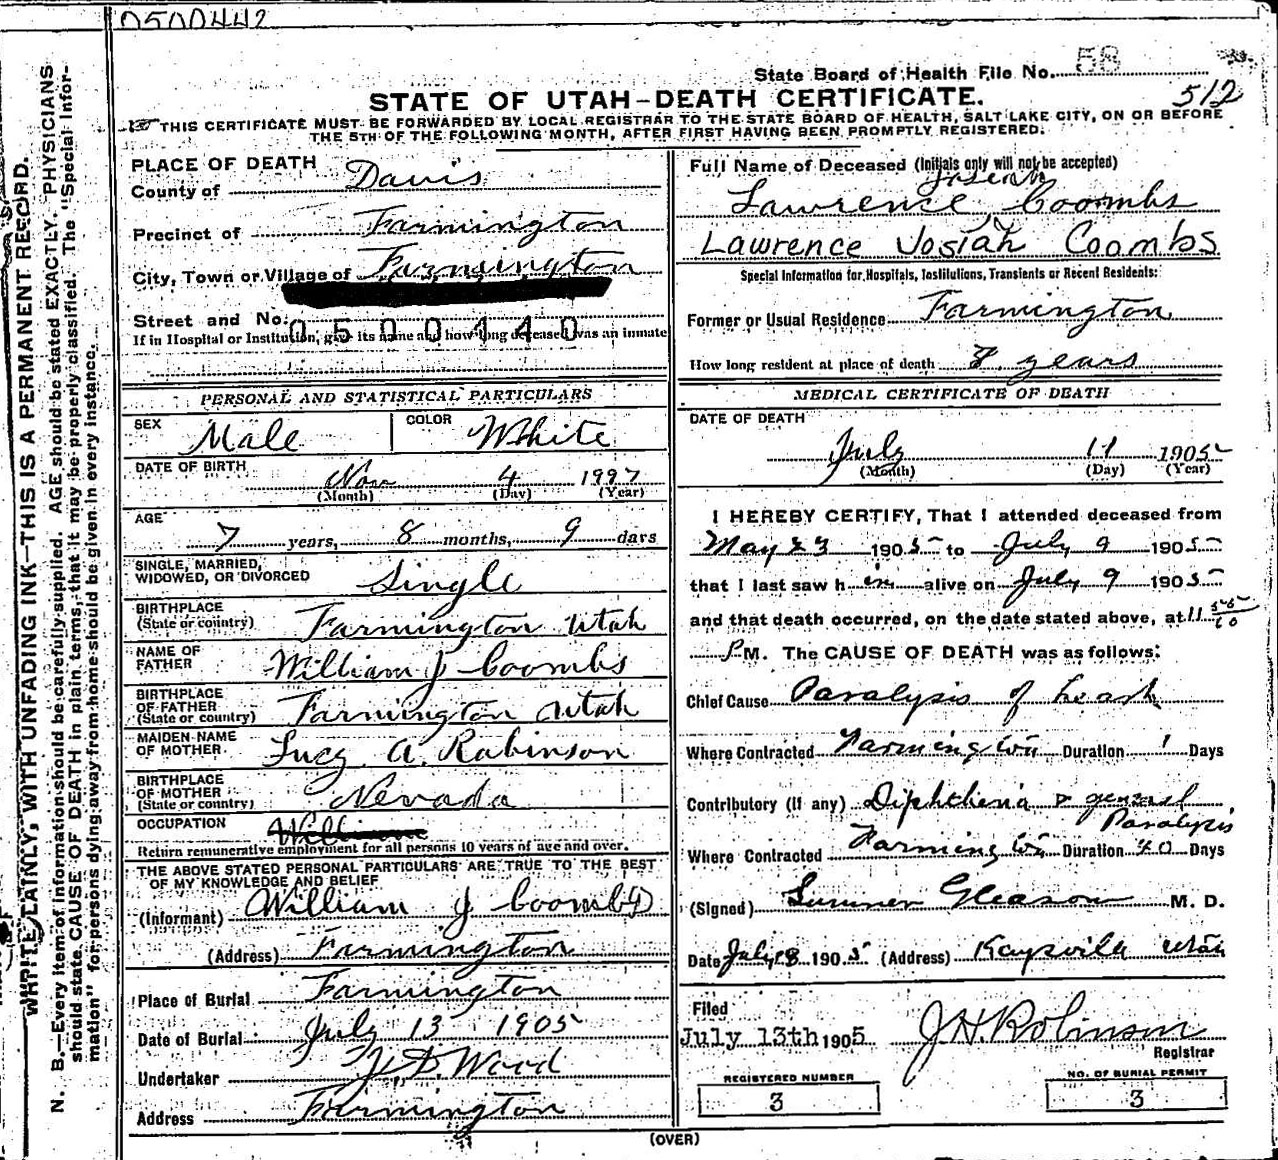 0500442
State Board of Health File No. 58
512
STATE OF UTAH—DEATH CERTIFICATE.
THIS CERTIFICATE MUST BE FORWARDED BY LOCAL REGISTRAR TO THE STATE BOARD OF HEALTH, SALT LAKE CITY, ON OR BEFORE
THE 5TH OF THE FOLLOWING MONTH, AFTER FIRST HAVING BEEN PROMPTLY REGISTERED.
WRITE PLAINLY, WITH UNFADING INK—THIS IS A PERMANENT RECORD.
N. B.—Every item of information should be carefully supplied. AGE should be stated EXACTLY. PHYSICIANS
should state CAUSE OF DEATH in plain terms, that it may be properly classified. The "Special Infor-
mation" for persons dying away from home should be given in every instance.
PLACE OF DEATH
County of Davis
Precinct of Farmington
City, Town or Village of Farmington
Street and No.
0500440
If in Hospital or Institution, give its name and how long deceased was an inmate
PERSONAL AND STATISTICAL PARTICULARS
SEX Male COLOR White
DATE OF BIRTH
Nov 4 1997
(Month) (Day) (Year)
AGE
7 years, 8 months, 9 days
SINGLE, MARRIED,
WIDOWED, OR DIVORCED Single
BIRTHPLACE
(State or country) Farmington Utah
NAME OF
FATHER William J Coombs
BIRTHPLACE
OF FATHER
(State or country) Farmington Utah
MAIDEN NAME
OF MOTHER Lucy A. Robinson
BIRTHPLACE
OF MOTHER
(State or country) Nevada
OCCUPATION
Return remunerative employment for all persons 10 years of age and over.
THE ABOVE STATED PERSONAL PARTICULARS ARE TRUE TO THE BEST
OF MY KNOWLEDGE AND BELIEF
(Informant) William J Coombs
(Address) Farmington
Place of Burial Farmington
Date of Burial July 13 1905
Undertaker Wood
Address Farmington
Full Name of Deceased (Initials only will not be accepted)
Joseph
Lawrence Coombs
Lawrence Josiah Coombs
Special Information for Hospitals, Institutions, Transients or Recent Residents:
Former or Usual Residence Farmington
How long resident at place of death 7 years
MEDICAL CERTIFICATE OF DEATH
DATE OF DEATH
July 11 1905
(Month) (Day) (Year)
I HEREBY CERTIFY, That I attended deceased from
May 23 1905 to July 9 1905
that I last saw him alive on July 9 1905
and that death occurred, on the date stated above, at 11
P M. The CAUSE OF DEATH was as follows:
Chief Cause Paralysis of heart
Where Contracted Farmington Duration 1 Days
Contributory (if any) Diphtheria & general
Paralysis
Where Contracted Farmington Duration 40 Days
(Signed) Sumner Gleason M. D.
Date July 1905 (Address) Kaysville Utah
Filed
July 13th 1905 J H Robinson
Registrar
REGISTERED NUMBER
3
NO. OF BURIAL PERMIT
3
(OVER)